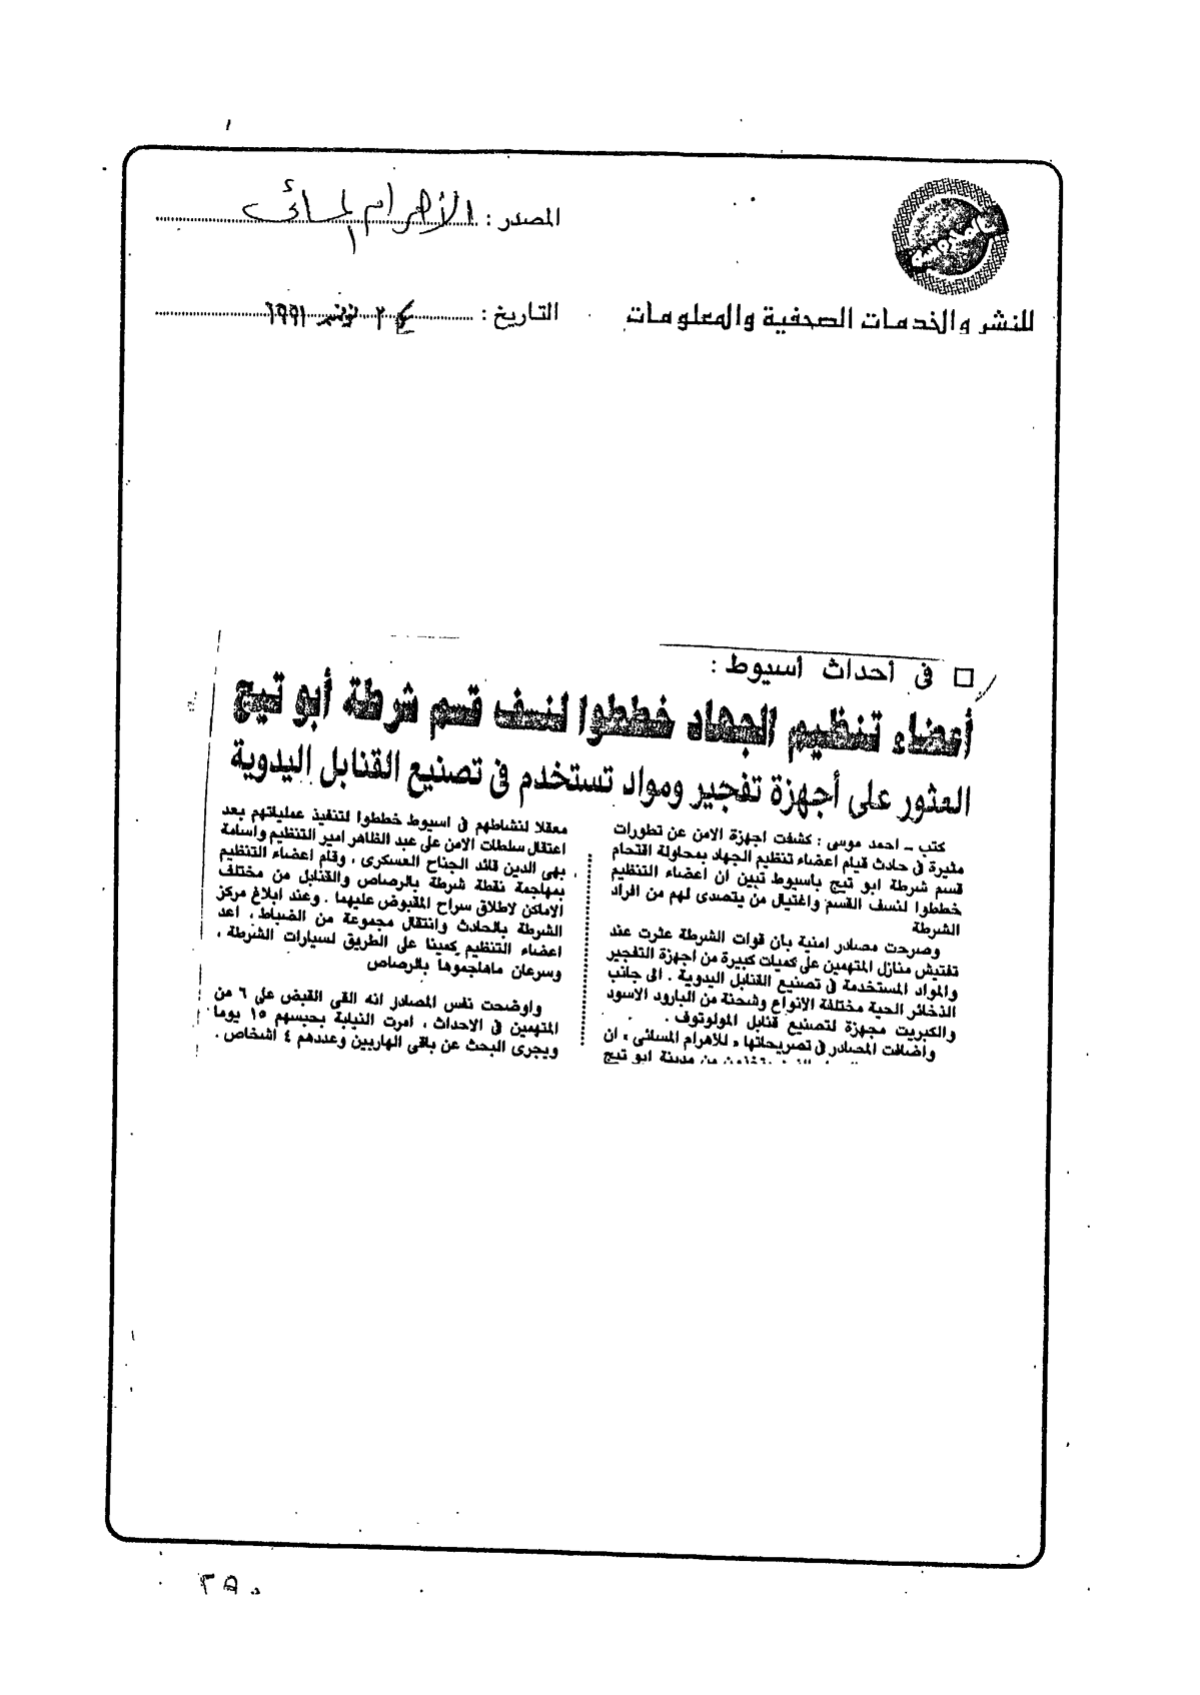 المصدر : الأهرام المسائى
للنشر والخدمات الصحفية والمعلومات
التاريخ : نوفمبر ١٩٩١
فى أحداث أسيوط :
أعضاء تنظيم الجهاد خططوا لنسف قسم شرطة أبو تيج
العثور على أجهزة تفجير ومواد تستخدم فى تصنيع القنابل اليدوية
كتب - احمد موسى : كشفت اجهزة الامن عن تطورات
مثيرة فى حادث قيام اعضاء تنظيم الجهاد بمحاولة اقتحام
قسم شرطة ابو تيج باسيوط تبين ان اعضاء التنظيم
خططوا لنسف القسم واغتيال من يتصدى لهم من افراد
الشرطة
وصرحت مصادر امنية بان قوات الشرطة عثرت عند
تفتيش منازل المتهمين على كميات كبيرة من اجهزة التفجير
والمواد المستخدمة فى تصنيع القنابل اليدوية . الى جانب
الذخائر الحية مختلفة الانواع وشحنة من البارود الاسود
والكبريت مجهزة لتصنيع قنابل المولوتوف .
واضافت المصادر فى تصريحاتها « للاهرام المسائى » ان
من مدينة ابو تيج
معقلا لنشاطهم فى اسيوط خططوا لتنفيذ عملياتهم بعد
اعتقال سلطات الامن على عبد الظاهر امير التنظيم واسامة
بهى الدين قائد الجناح العسكرى ، وقام اعضاء التنظيم
بمهاجمة نقطة شرطة بالرصاص والقنابل من مختلف
الاماكن لاطلاق سراح المقبوض عليهما . وعند ابلاغ مركز
الشرطة بالحادث وانتقال مجموعة من الضباط ، اعد
اعضاء التنظيم كمينا على الطريق لسيارات الشرطة ،
وسرعان ماهاجموها بالرصاص
واوضحت نفس المصادر انه القى القبض على ٦ من
المتهمين فى الاحداث ، امرت النيابة بحبسهم ١٥ يوما
ويجرى البحث عن باقى الهاربين وعددهم ٤ اشخاص .